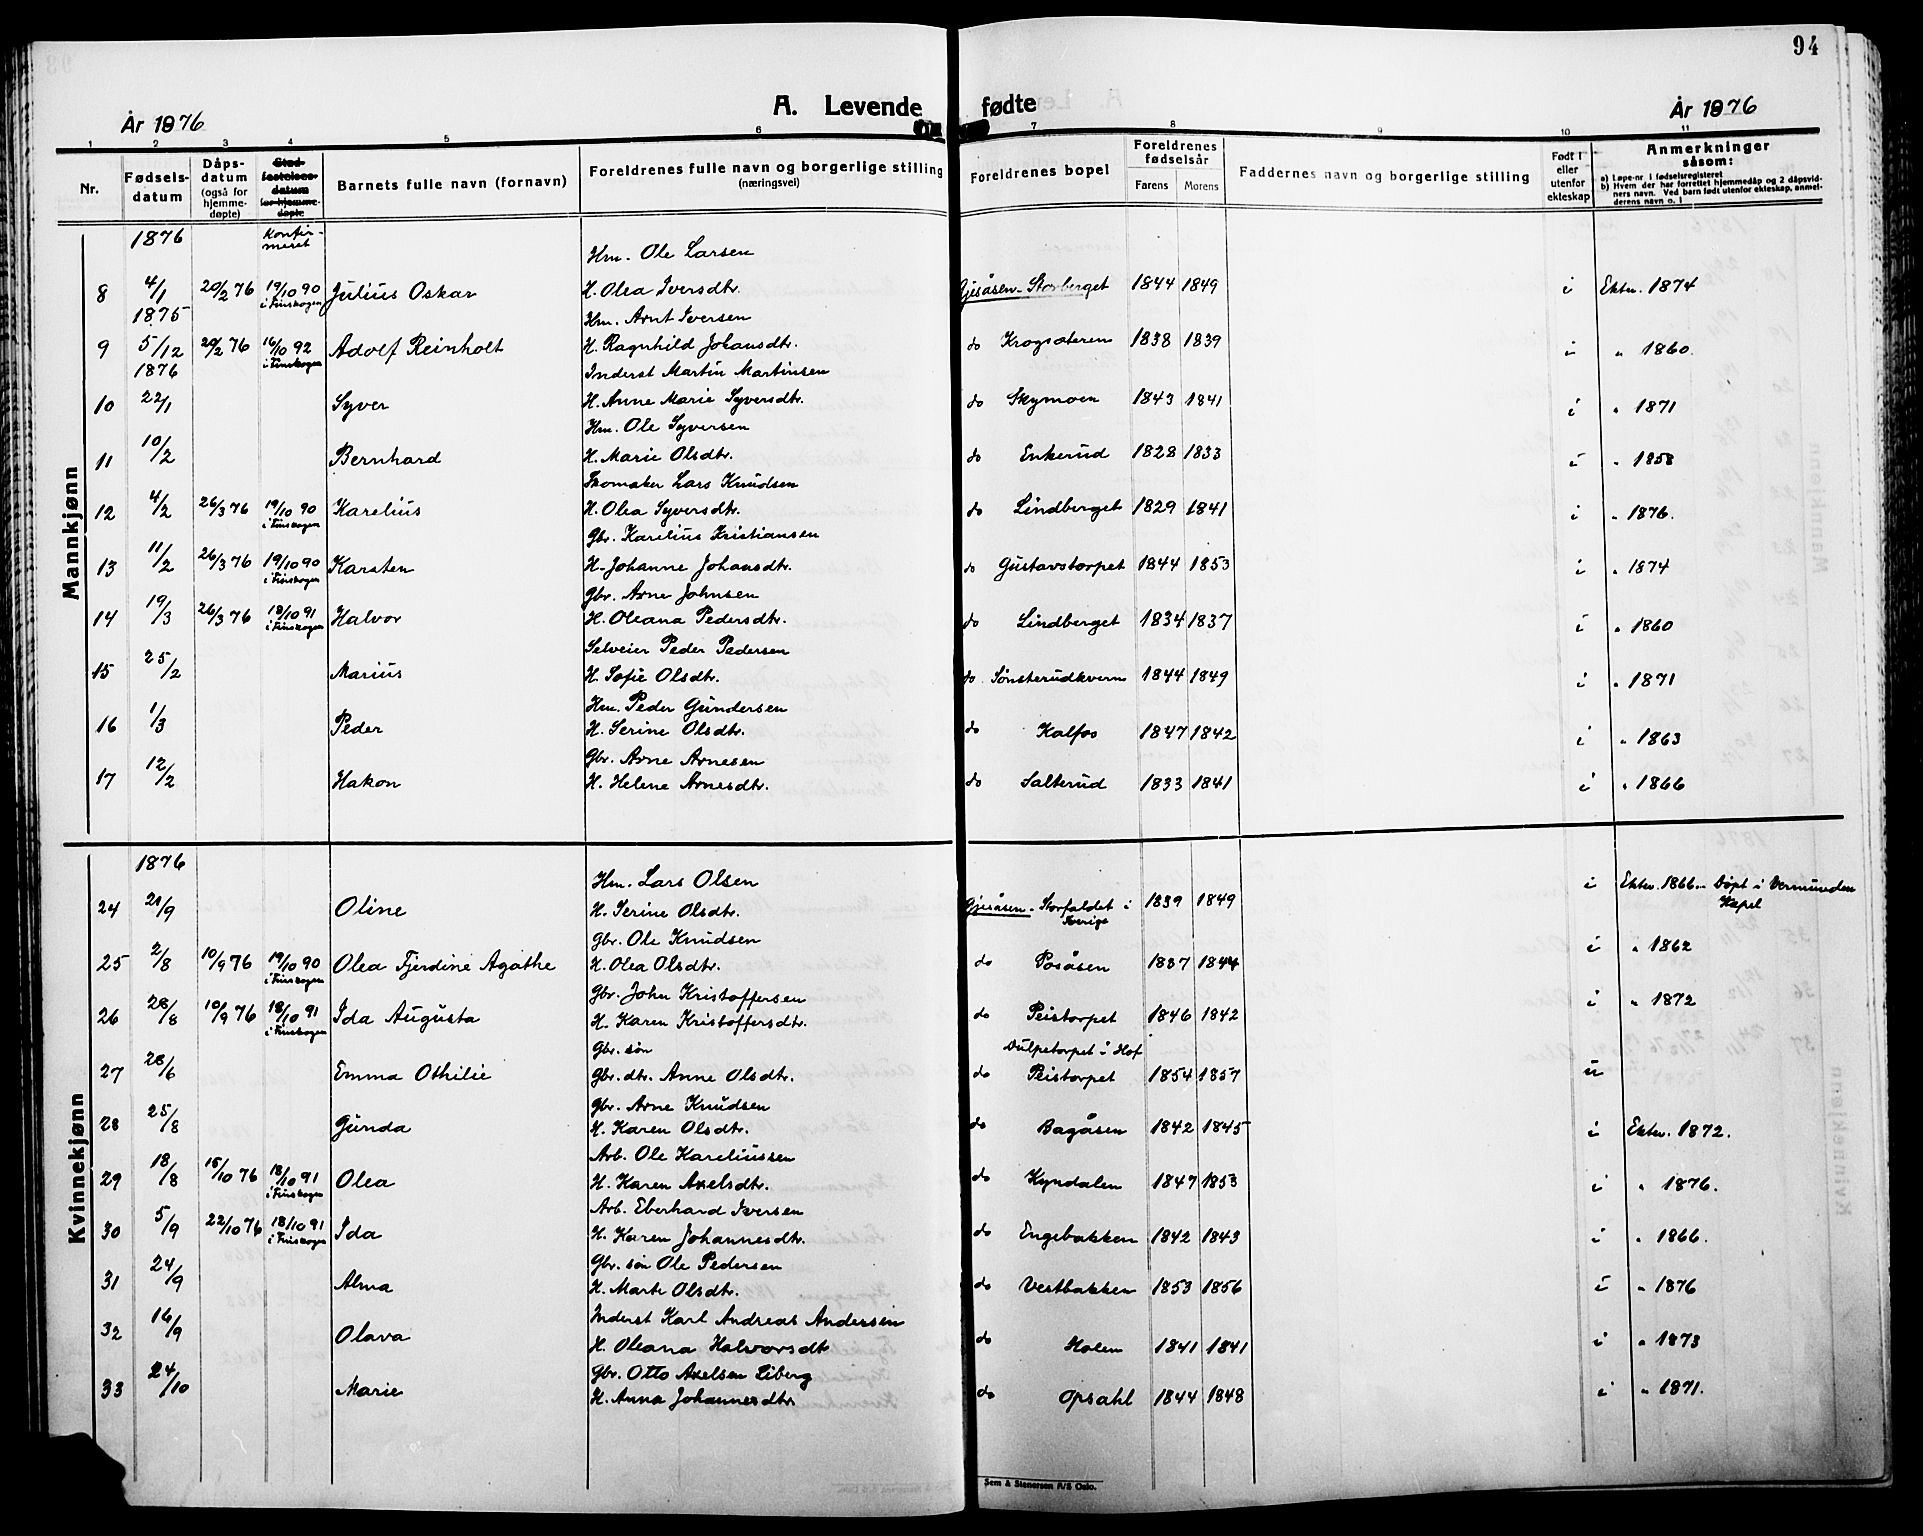 94
A. Levende fødte
År 1876
År 1876
1 2 3 4 5 6 7 8 9 10 11
Nr. Fødselsdatum Dåpsdatum (også for hjemmedøpte) Stadfestelsesdatum for hjemmedøpte Barnets fulle navn (fornavn) Foreldrenes fulle navn og borgerlige stilling (næringsvei) Foreldrenes bopel Foreldrenes fødselsår Farens Morens Faddernes navn og borgerlige stilling Født i eller utenfor ekteskap Anmerkninger såsom:
a) Løpe-nr. i fødselsregisteret
b) Hvem der har forrettet hjemmedåp og 2 dåpsvidners navn. Ved barn født utenfor ekteskap, anmelderens navn o. l
Mannkjønn
1876 Konfirmeret
Hm. Ole Larsen
8 4/1 20/2 76 19/10 90 i Finskogen Julius Oskar H. Olea Iversdtr. Gjesåsen - Storberget 1844 1849 i Ektev. 1874
1875 Hm. Arnt Iversen
9 5/12 20/2 76 16/10 92 i Finskogen Adolf Reinholt H. Ragnhild Johansdtr. do Krogsæteren 1838 1839 i " 1860.
1876 Inderst Martin Martinsen
10 22/1 Syver H. Anne Marie Syversdtr. do Skymoen 1843 1841 i " 1871
Hm. Ole Syversen
11 10/2 Bernhard H. Marie Olsdtr. do Enkerud 1828 1833 i " 1858
Skomaker Lars Knudsen
12 4/2 26/3 76 19/10 90 i Finskogen Karelius H. Olea Syversdtr. do Lindberget 1829 1841 i " 1876.
Gbr. Karelius Kristiansen
13 11/2 26/3 76 19/10 90 i Finskogen Karsten H. Johanne Johansdtr. do Gustavstorpet 1844 1853 i " 1874
Gbr. Arne Johnsen
14 19/3 26/3 76 18/10 91 i Finskogen Halvor H. Oleana Pedersdtr. do Lindberget 1834 1837 i " 1860
Selveier Peder Pedersen
15 25/2 Marius H. Sofie Olsdtr. do Sønsterudkvern 1844 1849 i " 1871
Hm. Peder Gundersen
16 1/3 Peder H. Serine Olsdtr. do Kalfos 1847 1842 i " 1863
Gbr. Arne Arnesen
17 12/2 Hakon H. Helene Arnesdtr. do Salterud 1833 1841 i " 1866
Kvinnekjønn
1876
Hm. Lars Olsen
24 21/9 Oline H. Serine Olsdtr. Gjesåsen - Storfaldet i Sverige 1839 1849 i Ektev. 1866 - Døpt i Vermunden Kapel
Gbr. Ole Knudsen
25 2/8 10/9 76 19/10 90 i Finskogen Olea Fjerdine Agathe H. Olea Olsdtr. do Posåsen 1837 1844 i " 1862
Gbr. John Kristoffersen
26 28/8 10/9 76 18/10 91 i Finskogen Ida Augusta H. Karen Kristoffersdtr. do Peistorpet 1846 1842 i " 1872
Gbr. søn Dulpetorpet i Hof
27 28/6 Emma Othilie Gbr. dtr. Anne Olsdtr. do Peistorpet 1854 1857 u
Gbr. Arne Knudsen
28 25/8 Gunda H. Karen Olsdtr. do Bagåsen 1842 1845 i Ektev. 1872.
Arb. Ole Kareliussen
29 18/8 15/10 76 18/10 91 i Finskogen Olea H. Karen Axelsdtr. do Kyndalen 1847 1853 i " 1876.
Arb. Eberhard Iversen
30 5/9 22/10 76 18/10 91 i Finskogen Ida H. Karen Johannesdtr. do Engebakken 1842 1843 i " 1866.
Gbr. søn Ole Pedersen
31 24/9 Alma H. Marte Olsdtr. do Vestbakken 1853 1856 i " 1876
Inderst Karl Andreas Andersen
32 16/9 Olava H. Oleana Halvorsdtr do Holen 1841 1841 i " 1873
Gbr. Otto Axelsen Liberg
33 24/10 Marie H. Anna Johannesdtr do Opsahl 1844 1848 i " 1871.
Sem & Stenersen A/S Oslo.